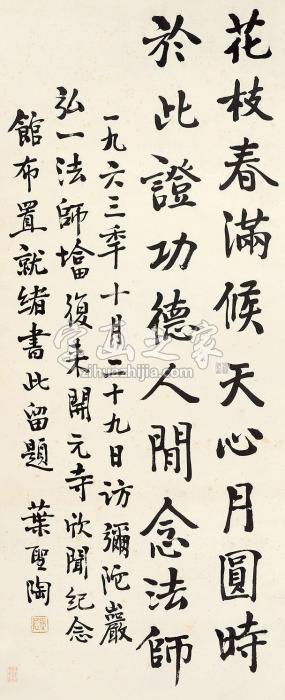 花枝春滿候天心月圓時
於此證功德人間念法師
一九六三年十月二十九日访彌陀巖
弘一法師墖復来開元寺欣聞紀念
館布置就绪書此留題
葉聖陶
字画之家
zihuazhijia.com